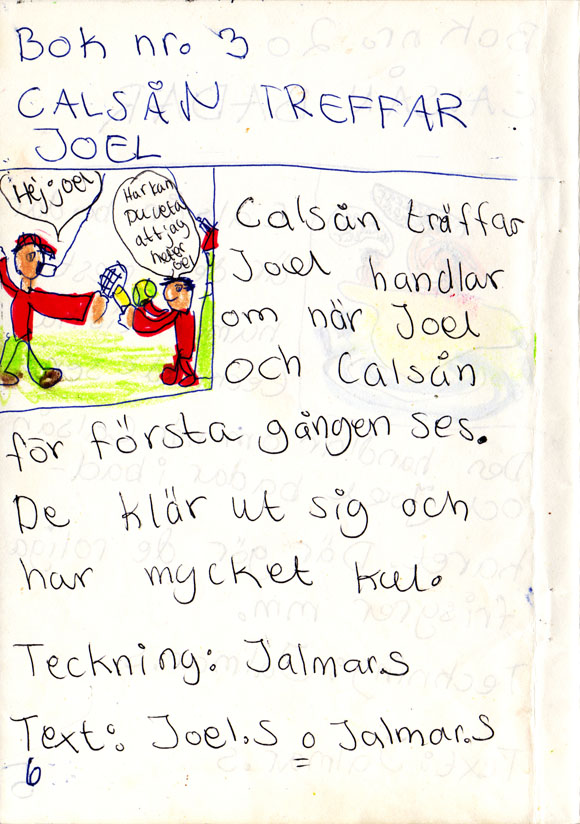 Bok nr. 3
CALSÅN TREFFAR
JOEL
Hej joel
Hur kan
Du veta
att jag
heter
joel
Calsån träffar
Joel handlar
om när Joel
och Calsån
för första gången ses.
De klär ut sig och
har mycket kul.
Teckning: Jalmar.S
Text: Joel.S o Jalmar.S
6